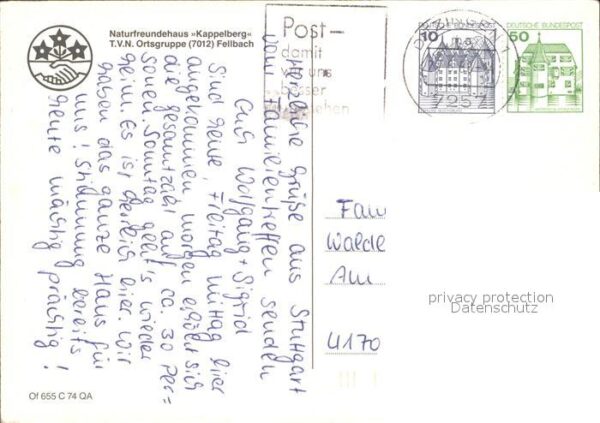 Naturfreundehaus »Kappelberg«
T.V.N. Ortsgruppe (7012) Fellbach
Post-
damit
wir uns
besser
verstehen
10
DEUTSCHE BUNDESPOST
50
7257
Herzliche Grüße aus Stuttgart
vom Familientreffen senden
Euch Wolfgang + Sigrid
Sind heute, Freitag mittag hier
angekommen, morgen erhöht sich
die Gesamtzahl auf ca. 30 Per=
sonen. Sonntag geht's wieder
heim. Es ist herrlich hier. Wir
haben das ganze Haus für
uns! Stimmung bereits
heute mächtig prächtig!
Fam
Walde
Am
4170
privacy protection
Datenschutz
Of 655 C 74 QA